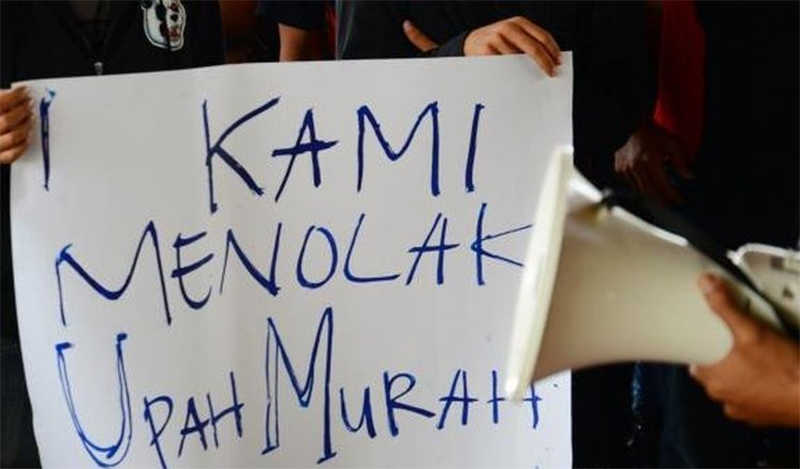 I KAMI
MENOLAK
UPAH MURAH